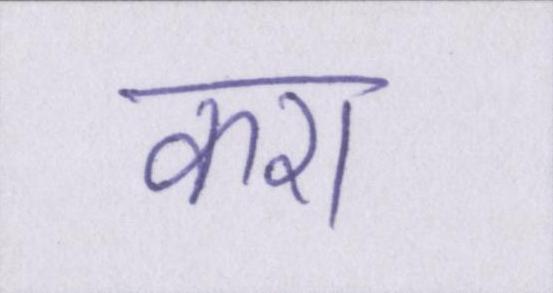 करा